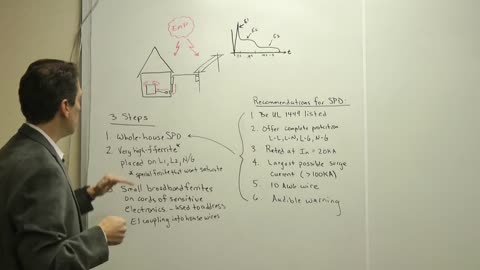 EMP
E1
E2
E3
t
3 Steps
1. Whole-house SPD
2. Very high-f ferrite*
placed on L1, L2, N/G
* special ferrite that won't saturate
Small broadband ferrites
on cords of sensitive
electronics - Used to address
E1 coupling into house wires
Recommendations for SPD:
1 Be UL 1449 listed
2. Offer complete protection
L-L, L-N, L-G, N-G
3. Rated at In = 20KA
4. Largest possible surge
current (>100KA)
5. 10 AWG wire
6. Audible warning